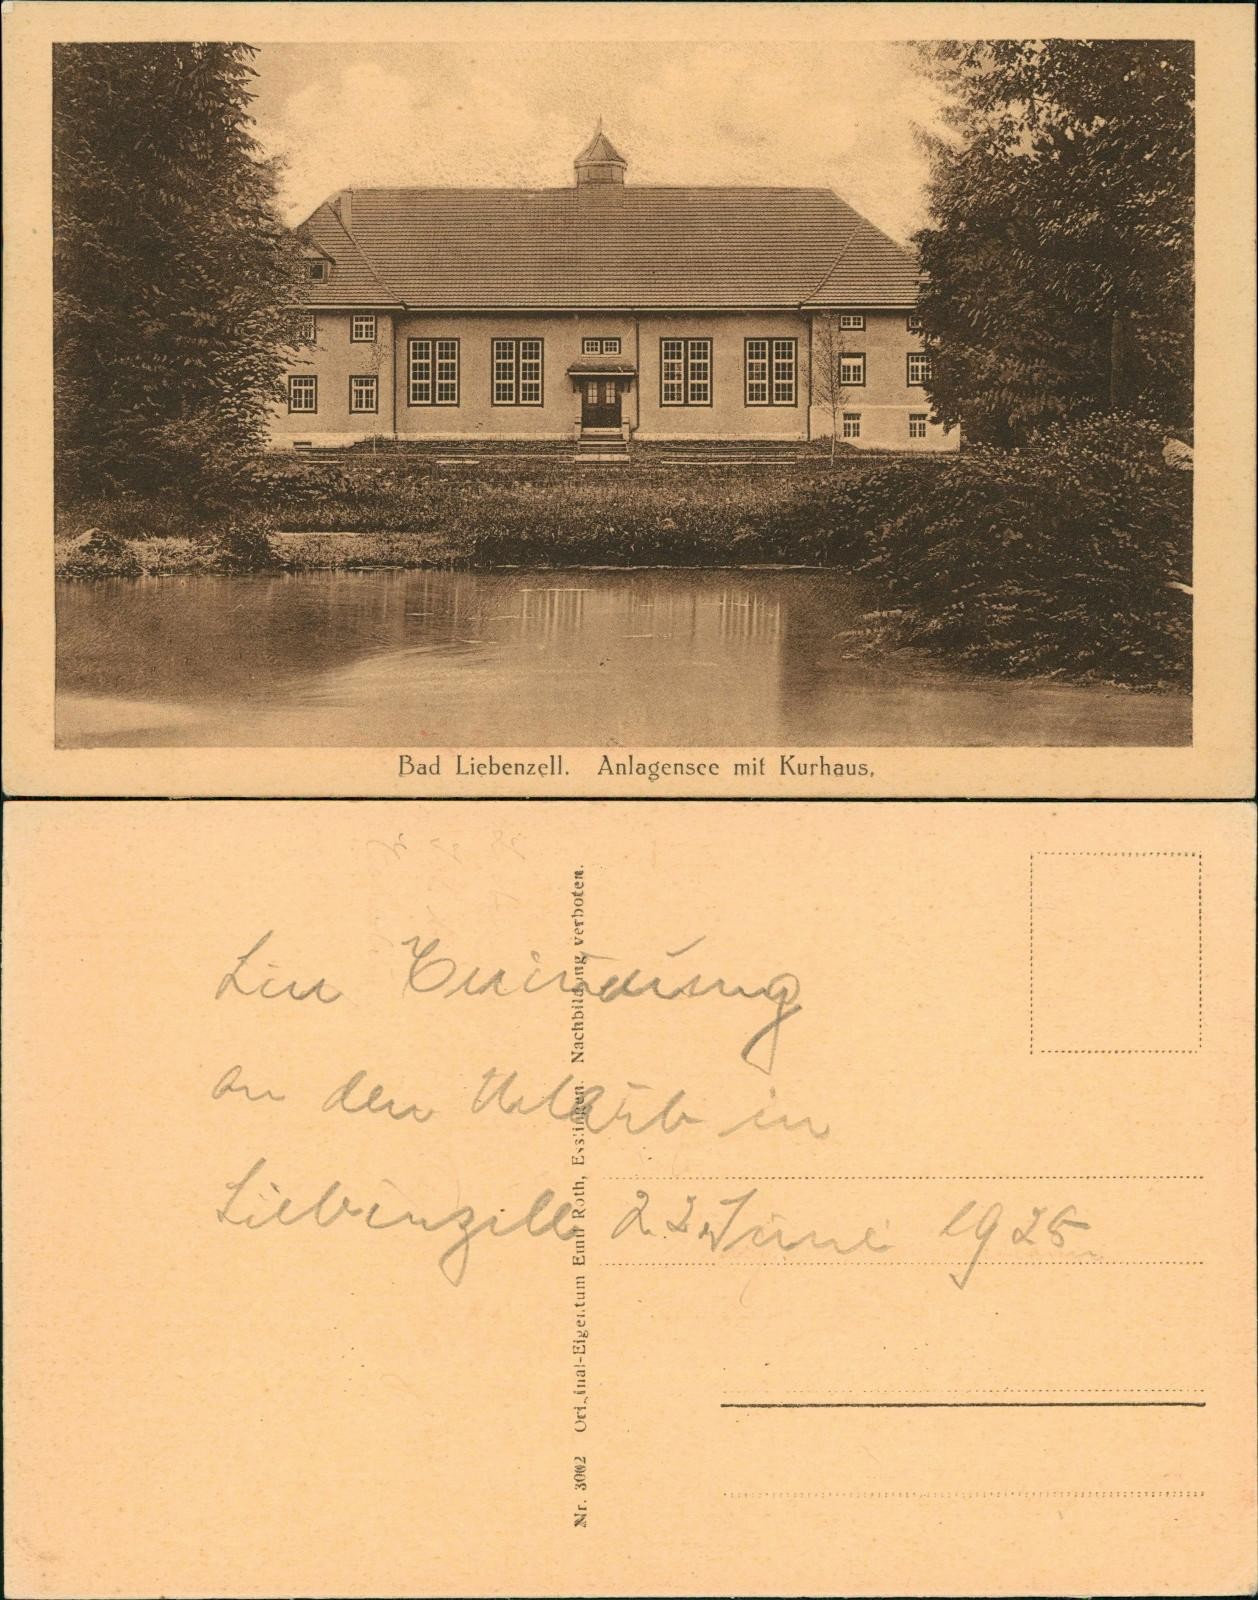 Bad Liebenzell. Anlagensee mit Kurhaus.
Nr. 3002 Original-Eigentum Emil Roth, Esslingen. Nachbildung verboten.
an den Urlaub in
Liebenzell 22. Juni 1925